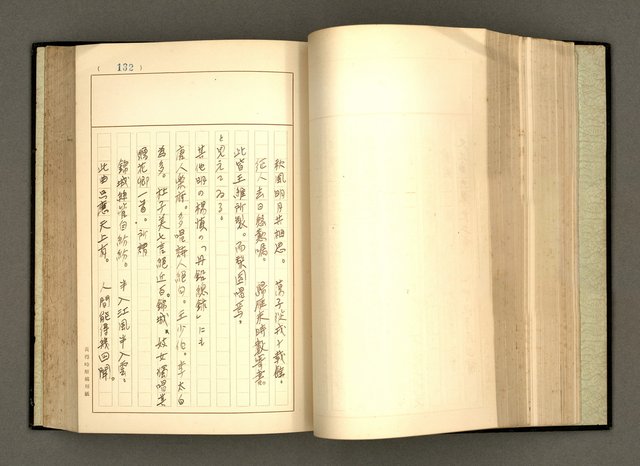 (132)
秋風明月共相思。 蕩子従戎十載餘。
征人去日慇懃囑。 歸雁来時數寄書。
此皆王維所製。而梨園唱焉。
と見えてゐる。
其他明の楊慎の「丹鉛總録」にも
唐人樂府。多唱詩人絶句。王少伯。李太白
為多。杜子美七言絶近百。錦城妓女獨唱其
贈花卿一首。所謂
錦城絲管日紛紛。 半入江風半入雲。
此曲只應天上有。 人間能得幾回聞。
黃得時原稿用紙